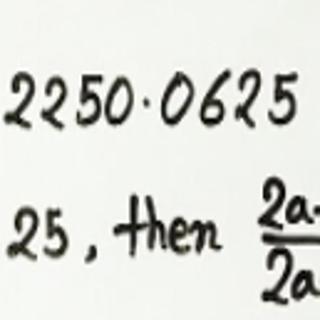 2250.0625
25, then 2a
2a